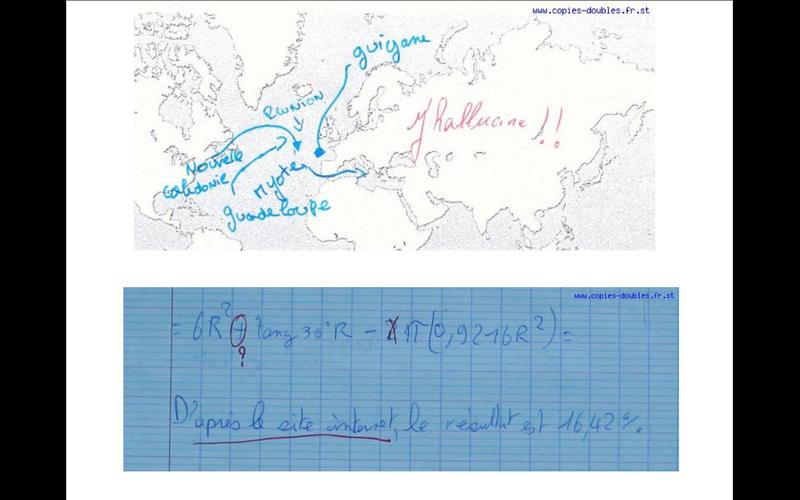 www.copies-doubles.fr.st
guiyane
REUNION
J'hallucine !!
Nouvelle
Calédonie
Myote
guadeloupe
www.copies-doubles.fr.st
= 6R² + tang 30°R - π(0,9216R²) =
?
D'après le site internet, le résultat est 16,42%.